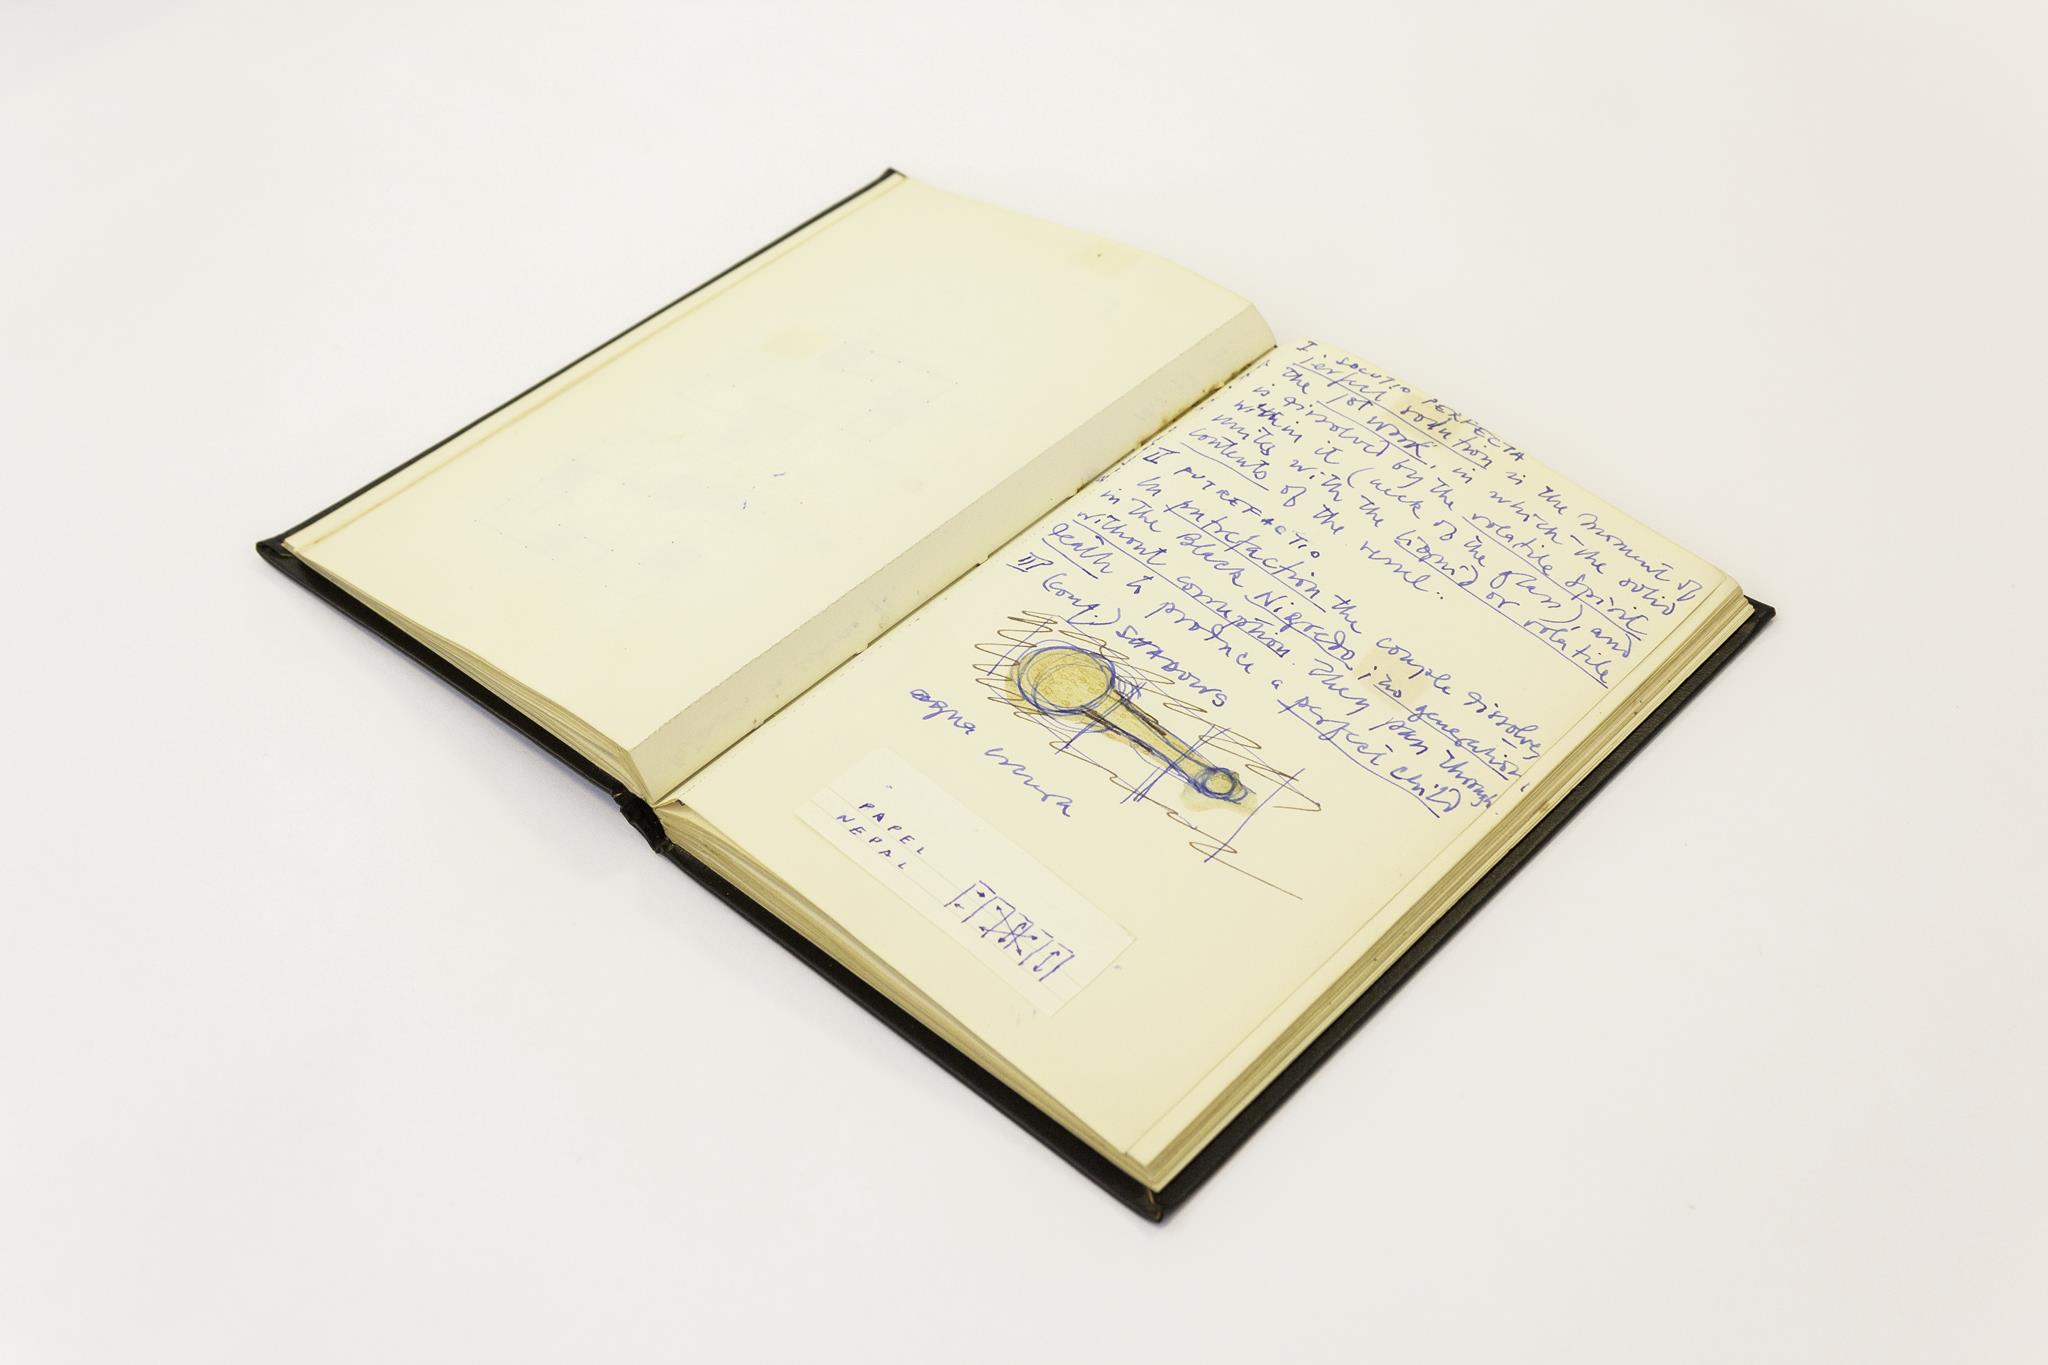 I. SOLUTIO PERFECTA
Perfect solution is the moment of
the 1st work, in which the solid
is dissolved by the volatile spirit
within it (neck of the glass), and
unites with the liquid or volatile
contents of the vessel.
II PUTREFACTIO
In putrefaction the couple dissolves
in the Black Nigredo; no generation
without corruption. They pass through
death to produce a perfect child
III (conf.) SHADOWS
PAPEL
NEPAL